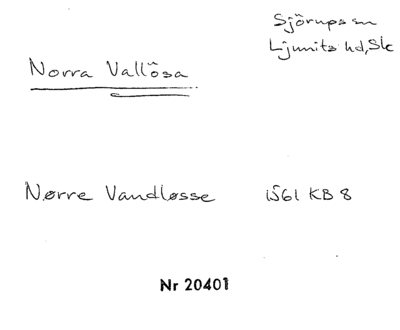 Sjörups sn
Ljunits hd, Sk
Norra Vallösa
Nørre Vandløsse 1561 KB 8
Nr 20401